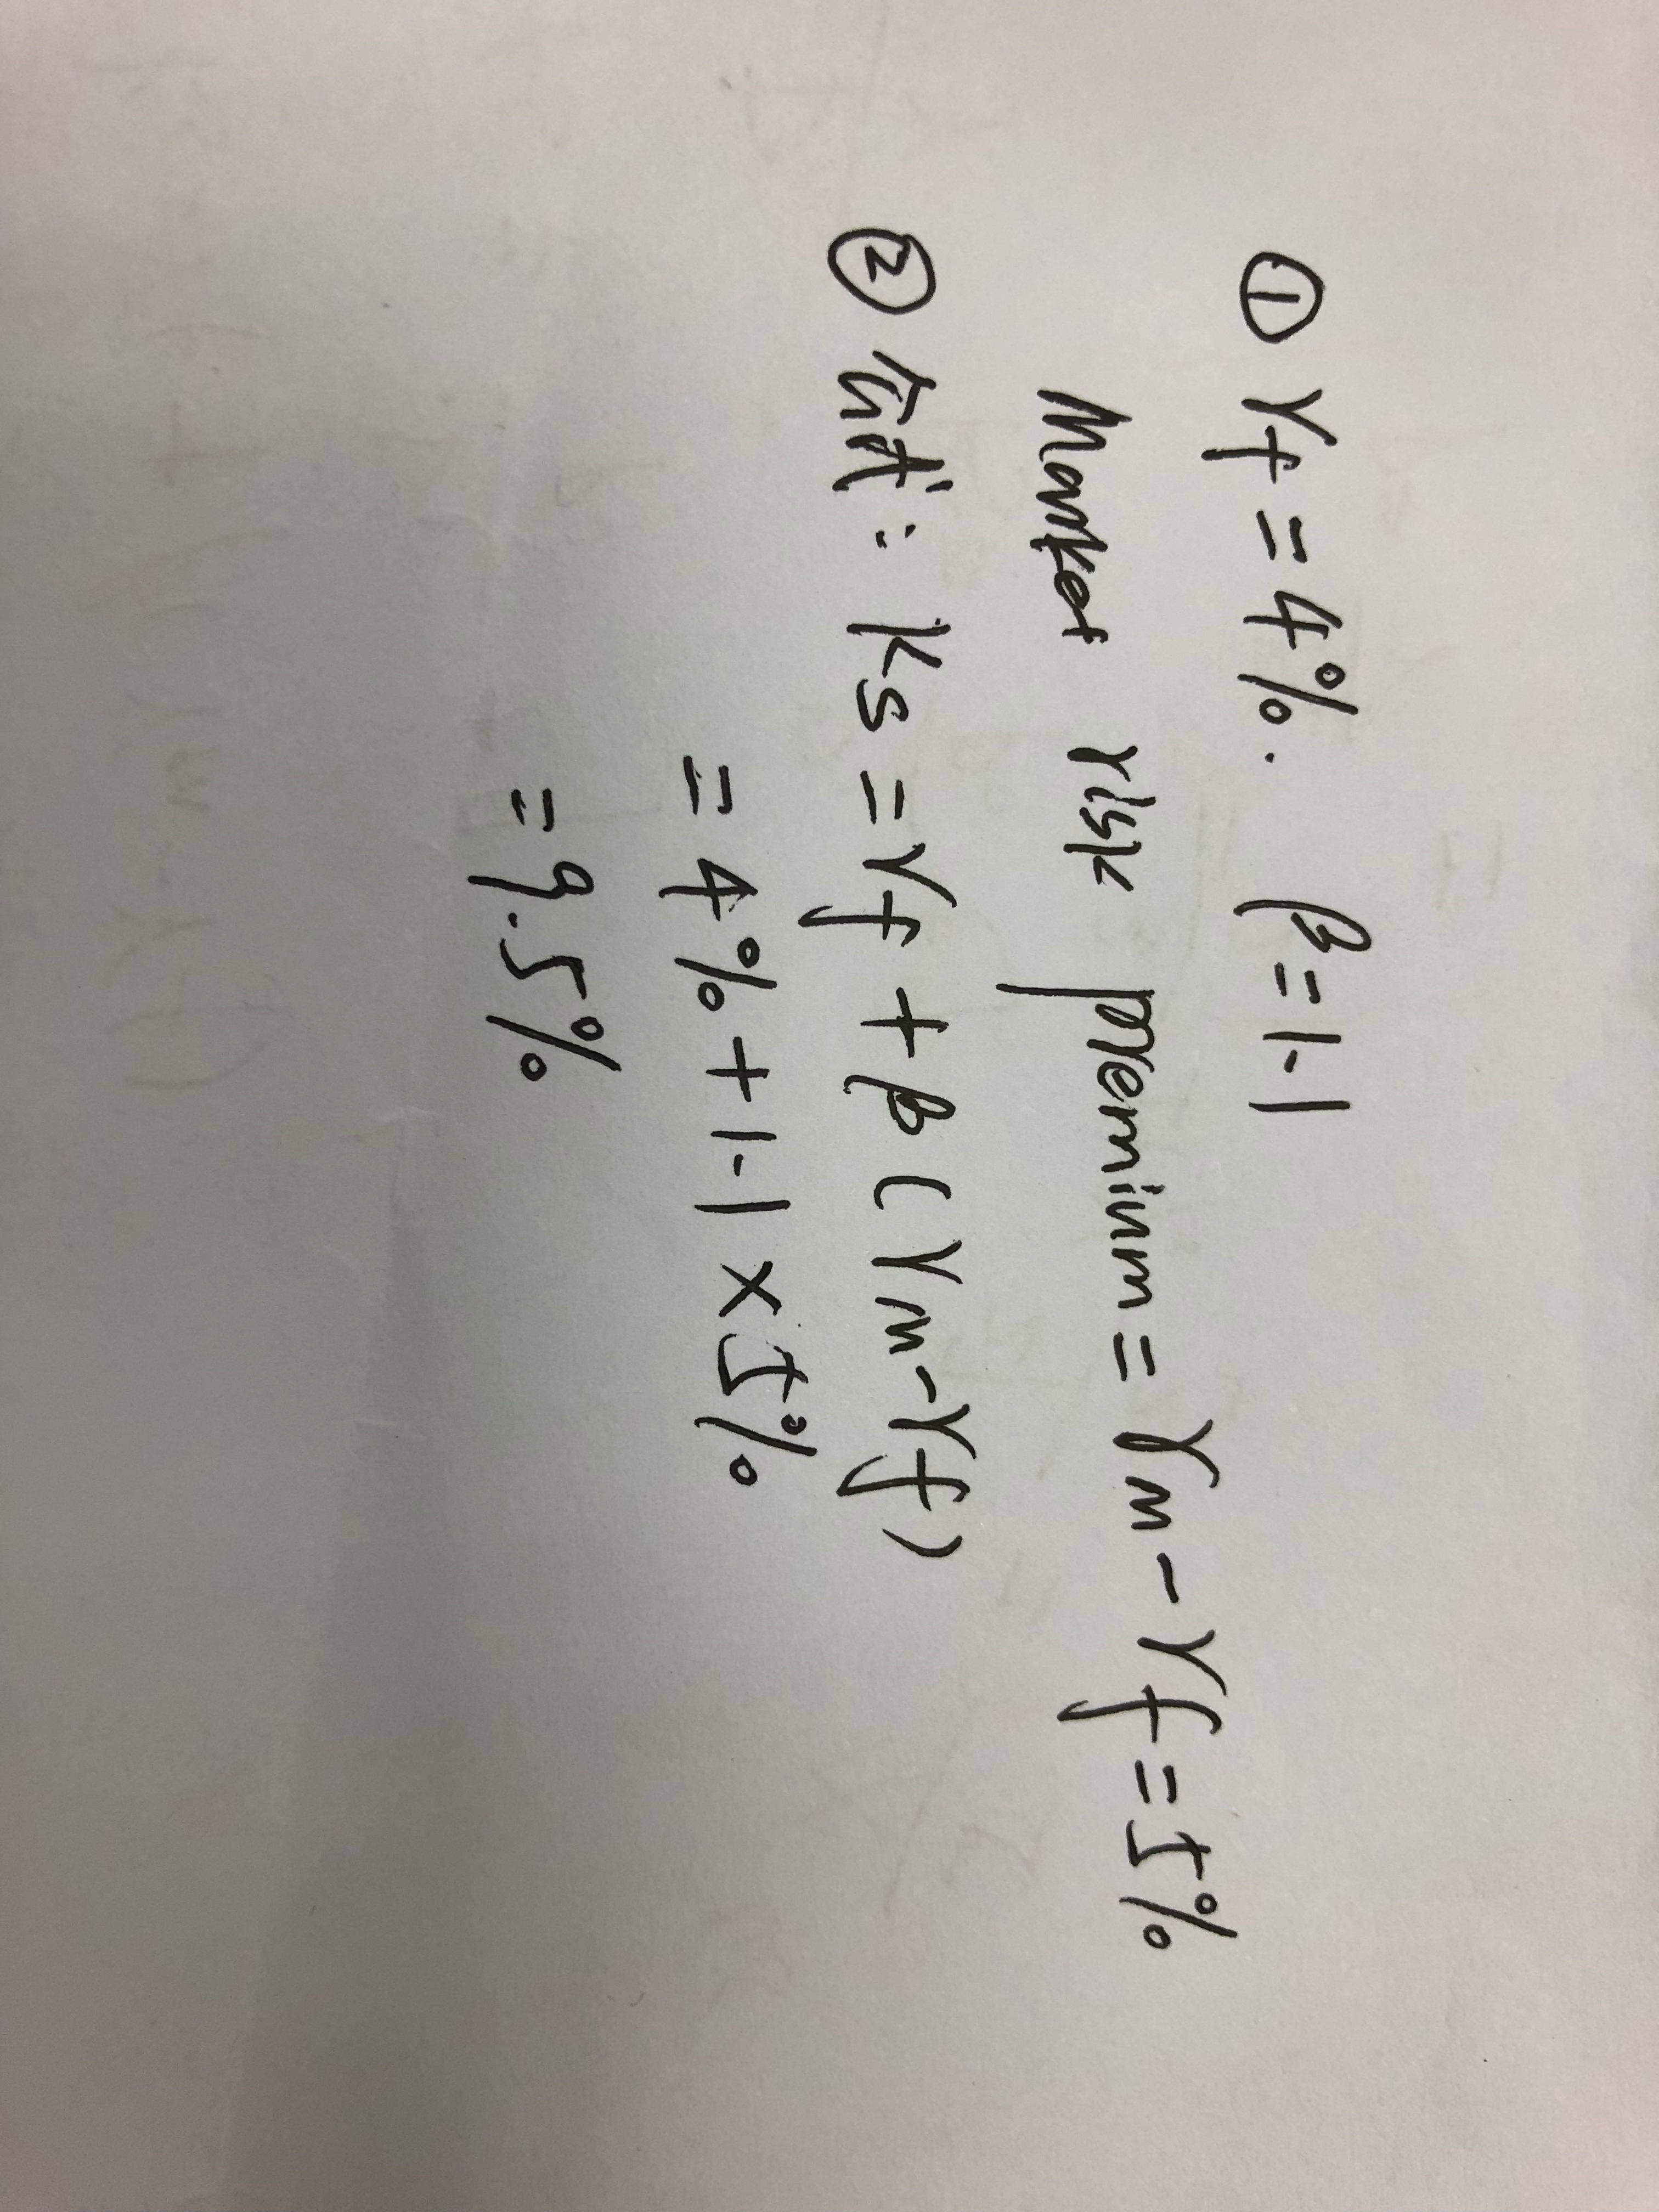 ① rf = 4%. β = 1.1
Market risk premium = rm - rf = 5%
② 公式: ks = rf + β (rm - rf)
= 4% + 1.1 × 5%
= 9.5%